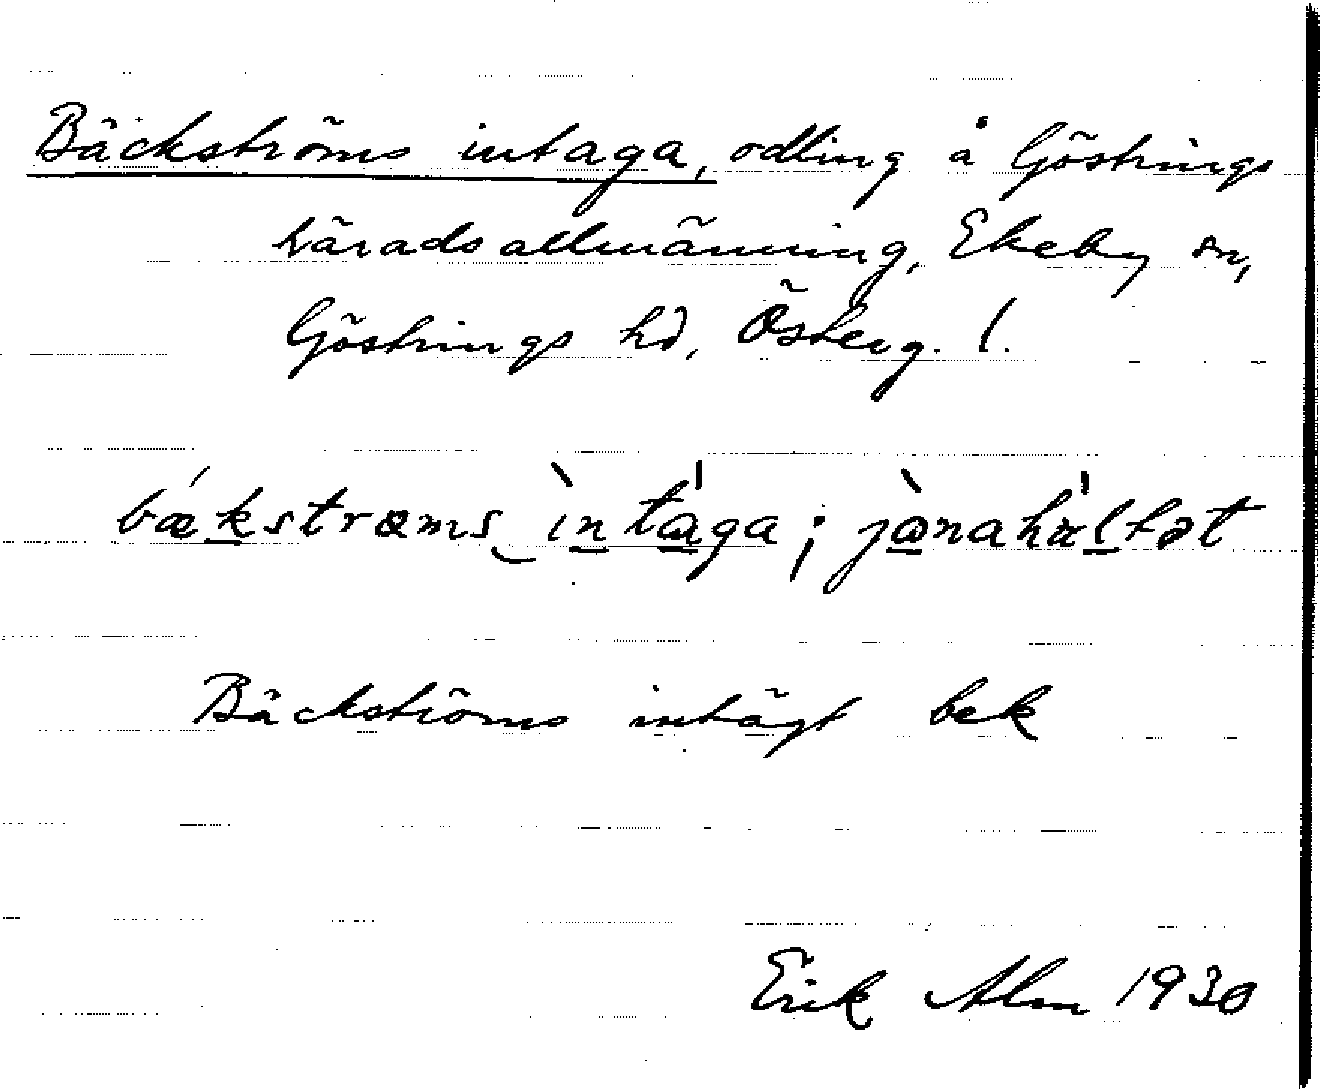 Bäckströms intaga, odling å Göstrings
häradsallmänning, Ekeby sn,
Göstrings hd, Österg. l.
bǽkstrœms ìntága; jònahál tət
Bäckströms intägt bek
Erik Alm 1930